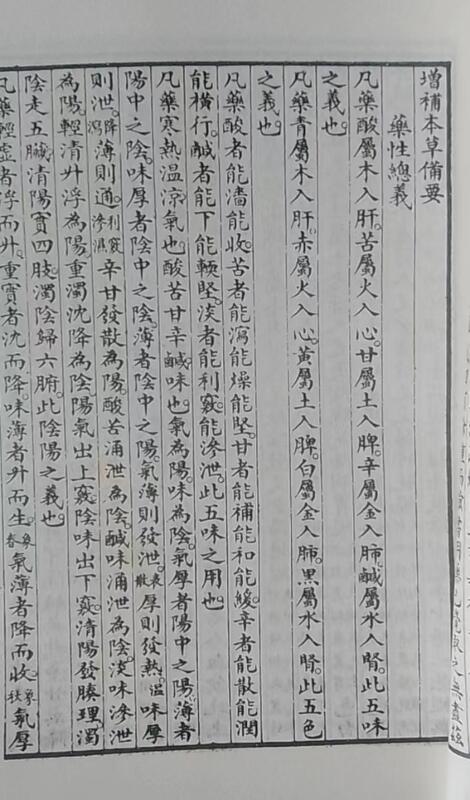 增補本草備要
藥性總義
凡藥酸屬木入肝。苦屬火入心。甘屬土入脾。辛屬金入肺。鹹屬水入腎。此五味
之義也。
凡藥青屬木入肝。赤屬火入心。黃屬土入脾。白屬金入肺。黑屬水入腎。此五色
之義也。
凡藥酸者能濇能收。苦者能瀉能燥能堅。甘者能補能和能緩。辛者能散能潤
能橫行。鹹者能下能輭堅。淡者能利竅。能滲泄。此五味之用也。
凡藥寒熱溫涼氣也。酸苦甘辛鹹味也。氣為陽。味為陰。氣厚者陽中之陽。薄者
陽中之陰。味厚者陰中之陰。薄者陰中之陽。氣薄則發泄。表散厚則發熱。溫味厚
則泄。降瀉薄則通。利竅滲濕辛甘發散為陽。酸苦涌泄為陰。鹹味涌泄為陰。淡味滲泄
為陽。輕清升浮為陽。重濁沈降為陰。陽氣出上竅。陰味出下竅。清陽發腠理。濁
陰走五臟。清陽實四肢。濁陰歸六腑。此陰陽之義也。
凡藥輕虛者浮而升。重實者沈而降。味薄者升而生。象春氣薄者降而收。象秋氣厚